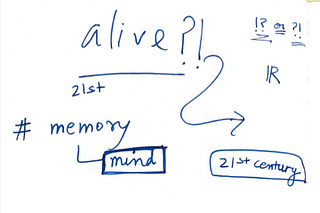 alive?!
!? or ?!
21st
IR
# memory
mind
21st century